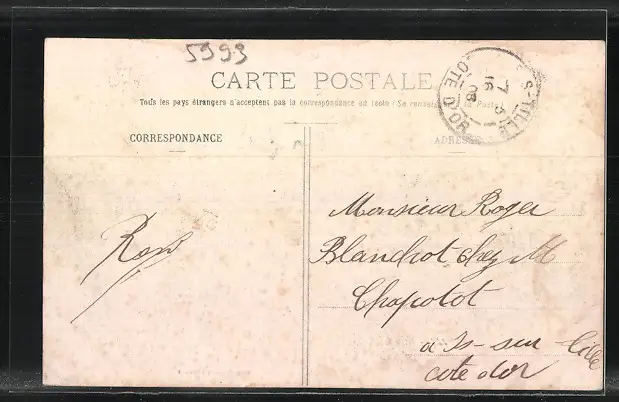 5993
CARTE POSTALE
Tous les pays étrangers n'acceptent pas la correspondance au recto (Se renseigner à la Poste)
CORRESPONDANCE
ADRESSE
S-TILLE
COTE D'OR
Monsieur Roger
Blanchot chez M
Chapotot
a Is-sur-Tille
cote d'or